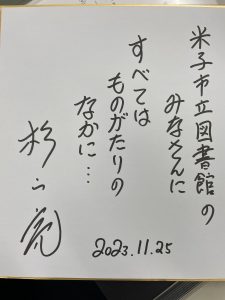 米子市立図書館の
みなさんに
すべては
ものがたりの
なかに…
杉山亮
2023.11.25